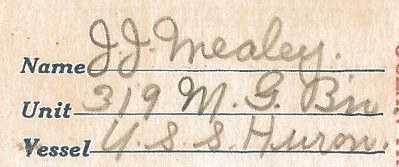 Name J.J. Mealey.
Unit 319 M. G. Bn.
Vessel U.S.S. Huron.